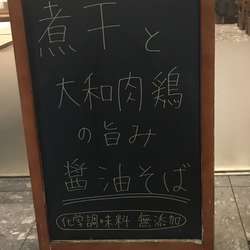 煮干と
大和肉鶏
の旨み
醤油そば
化学調味料 無添加